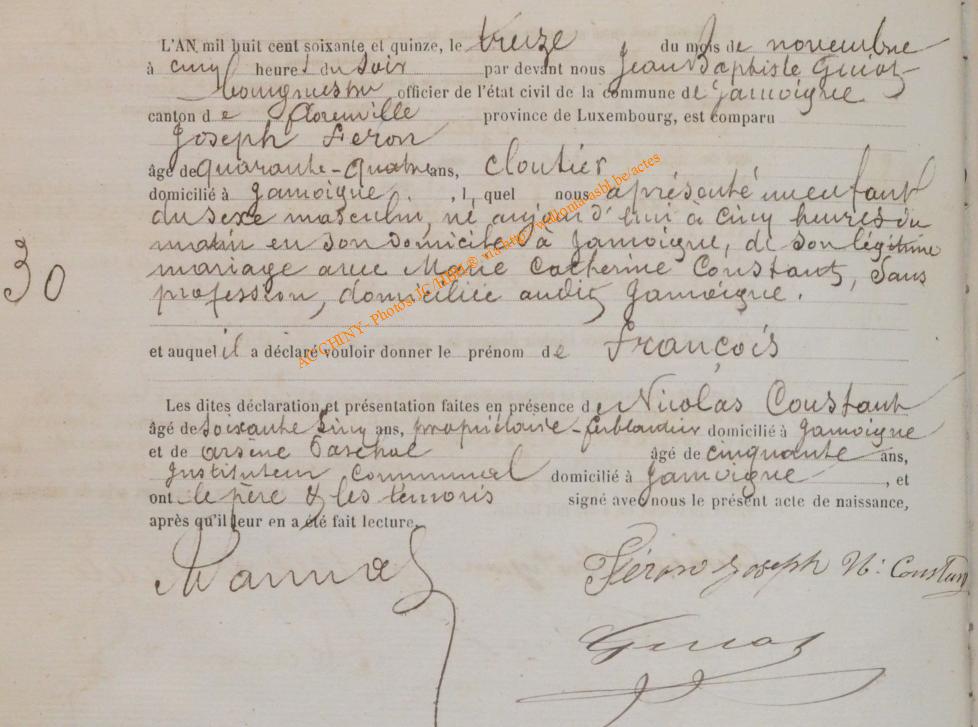 L'AN mil huit cent soixante et quinze, le treize du mois de novembre
à cinq heures du soir par devant nous Jean Baptiste Guiot
Bourgmestre officier de l'état civil de la commune de Jamoigne
canton de Florenville province de Luxembourg, est comparu
Joseph Feron
âgé de quarante-quatre ans, cloutier
domicilié à Jamoigne, lequel nous a présenté un enfant
du sexe masculin, né aujourd'hui à cinq heures du
matin en son domicile à Jamoigne, de son légitime
mariage avec Marie Catherine Constant, sans
profession, domiciliée audit Jamoigne.
30
et auquel il a déclaré vouloir donner le prénom de François
Les dites déclaration et présentation faites en présence de Nicolas Constant
âgé de soixante cinq ans, propriétaire-ferblantier domicilié à Jamoigne
et de arsène Paschal âgé de cinquante ans,
Instituteur Communal domicilié à Jamoigne, et
ont le père & les temoins signé avec nous le présent acte de naissance,
après qu'il leur en a été fait lecture.
Féron Joseph N: Constant
Guiot
AC CHINY - Photos JC/HBP © via http://wallonia-asbl.be/actes